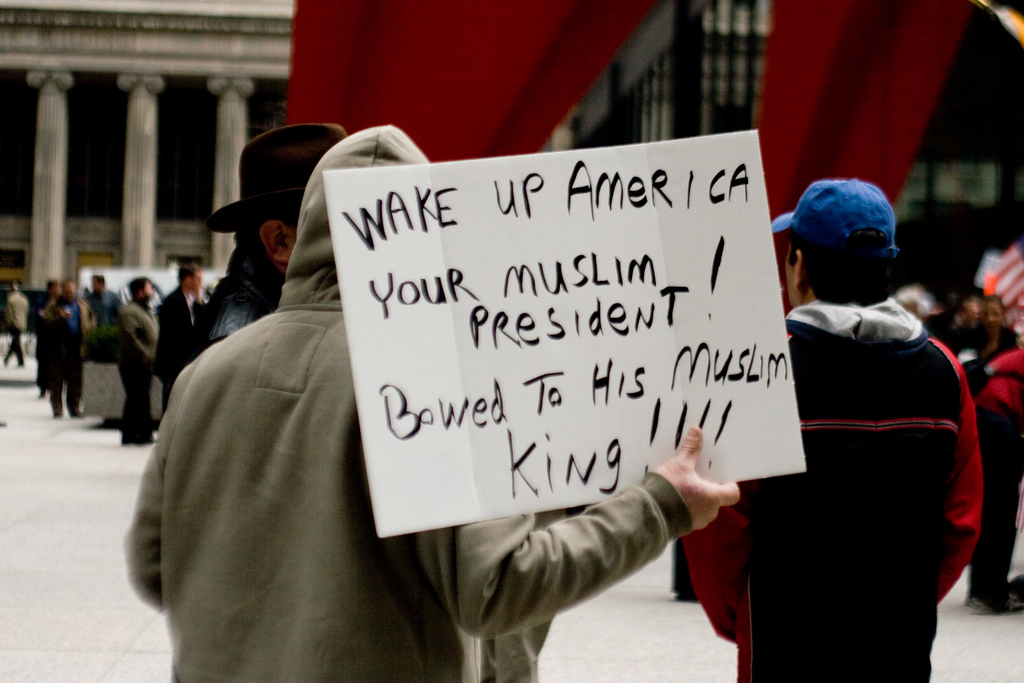 WAKE UP AMERICA
YOUR MUSLIM !
PRESIDENT
BOWED TO HIS MUSLIM
KING !!!!